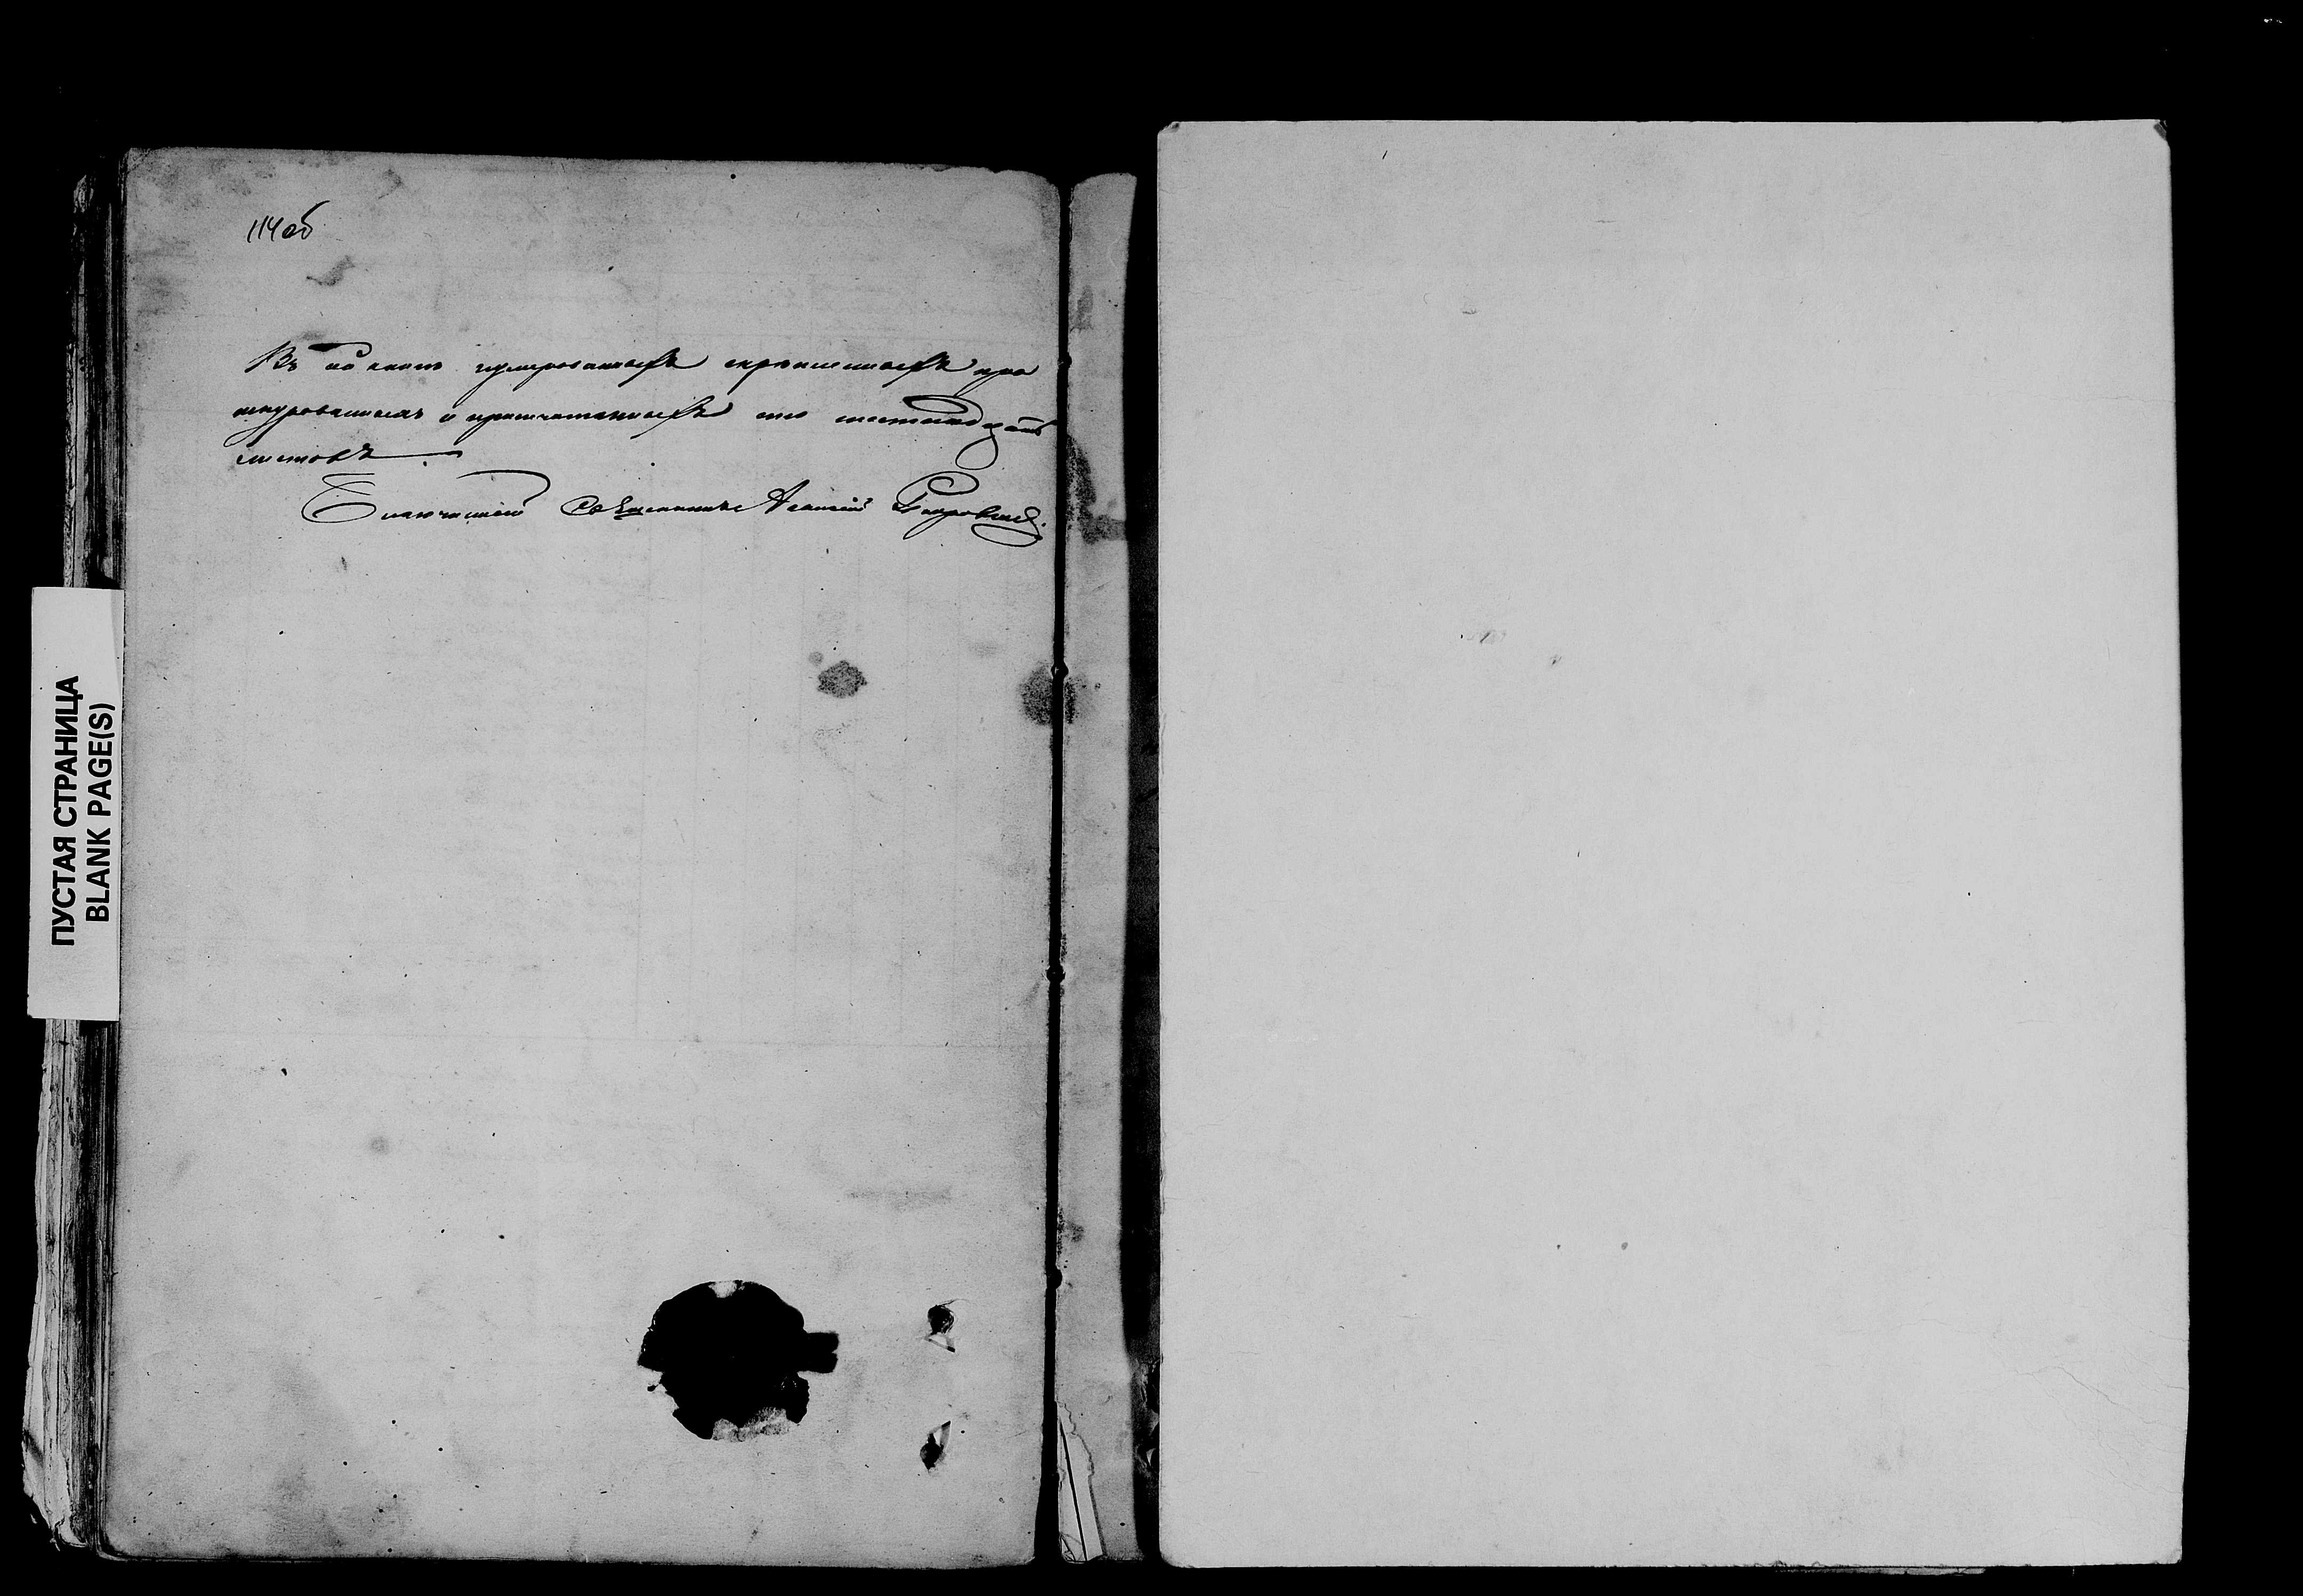 114об
Въ сей книгѣ нумерованныхъ скрѣпленныхъ про
шнурованныхъ и припечатанныхъ сто шестнадцать
листовъ
Благочинный Священникъ
ПУСТАЯ СТРАНИЦА
BLANK PAGE(S)